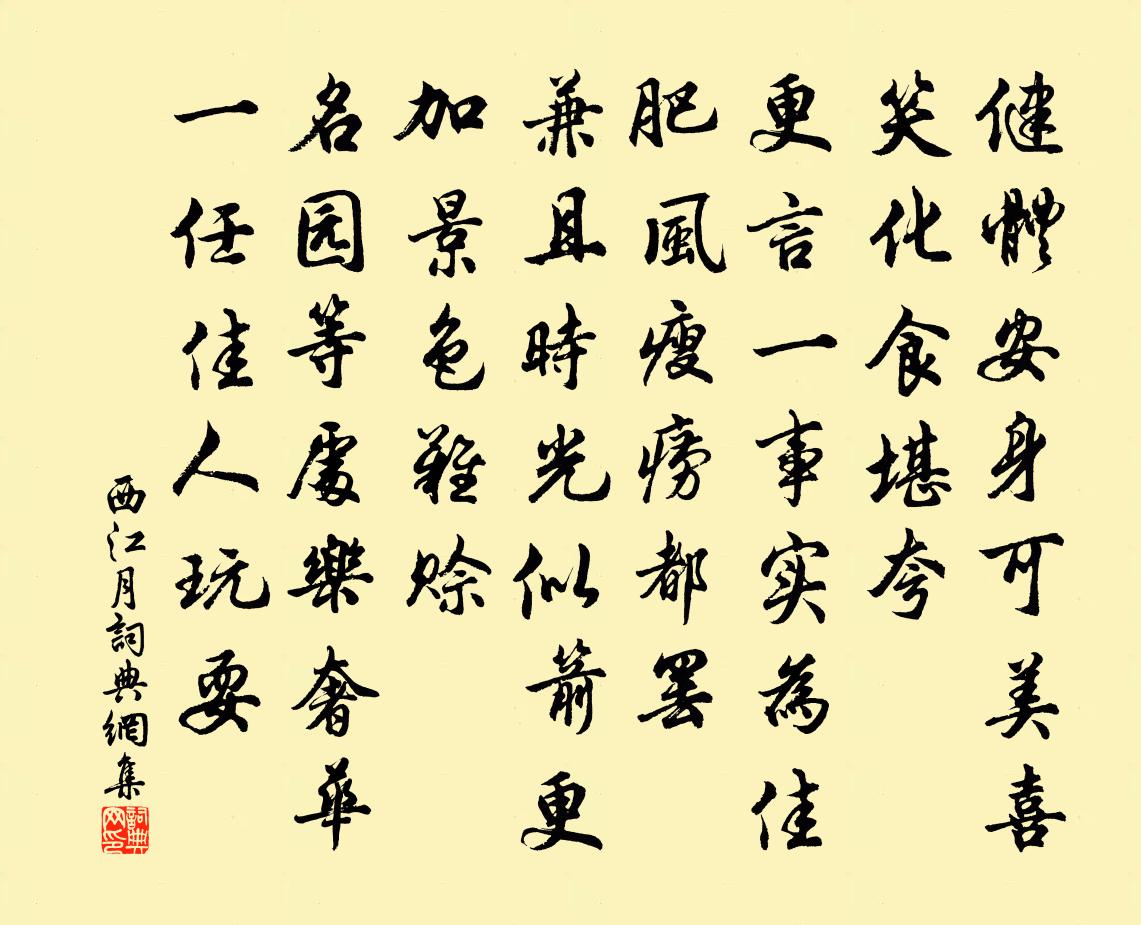 健體安身可美喜
笑化食堪夸
更言一事实為佳
肥風瘦癆都罢
兼且時光似箭更
加景色難賒
名园等處樂奢華
一任佳人玩耍
西江月詞典網集
詞典
网印